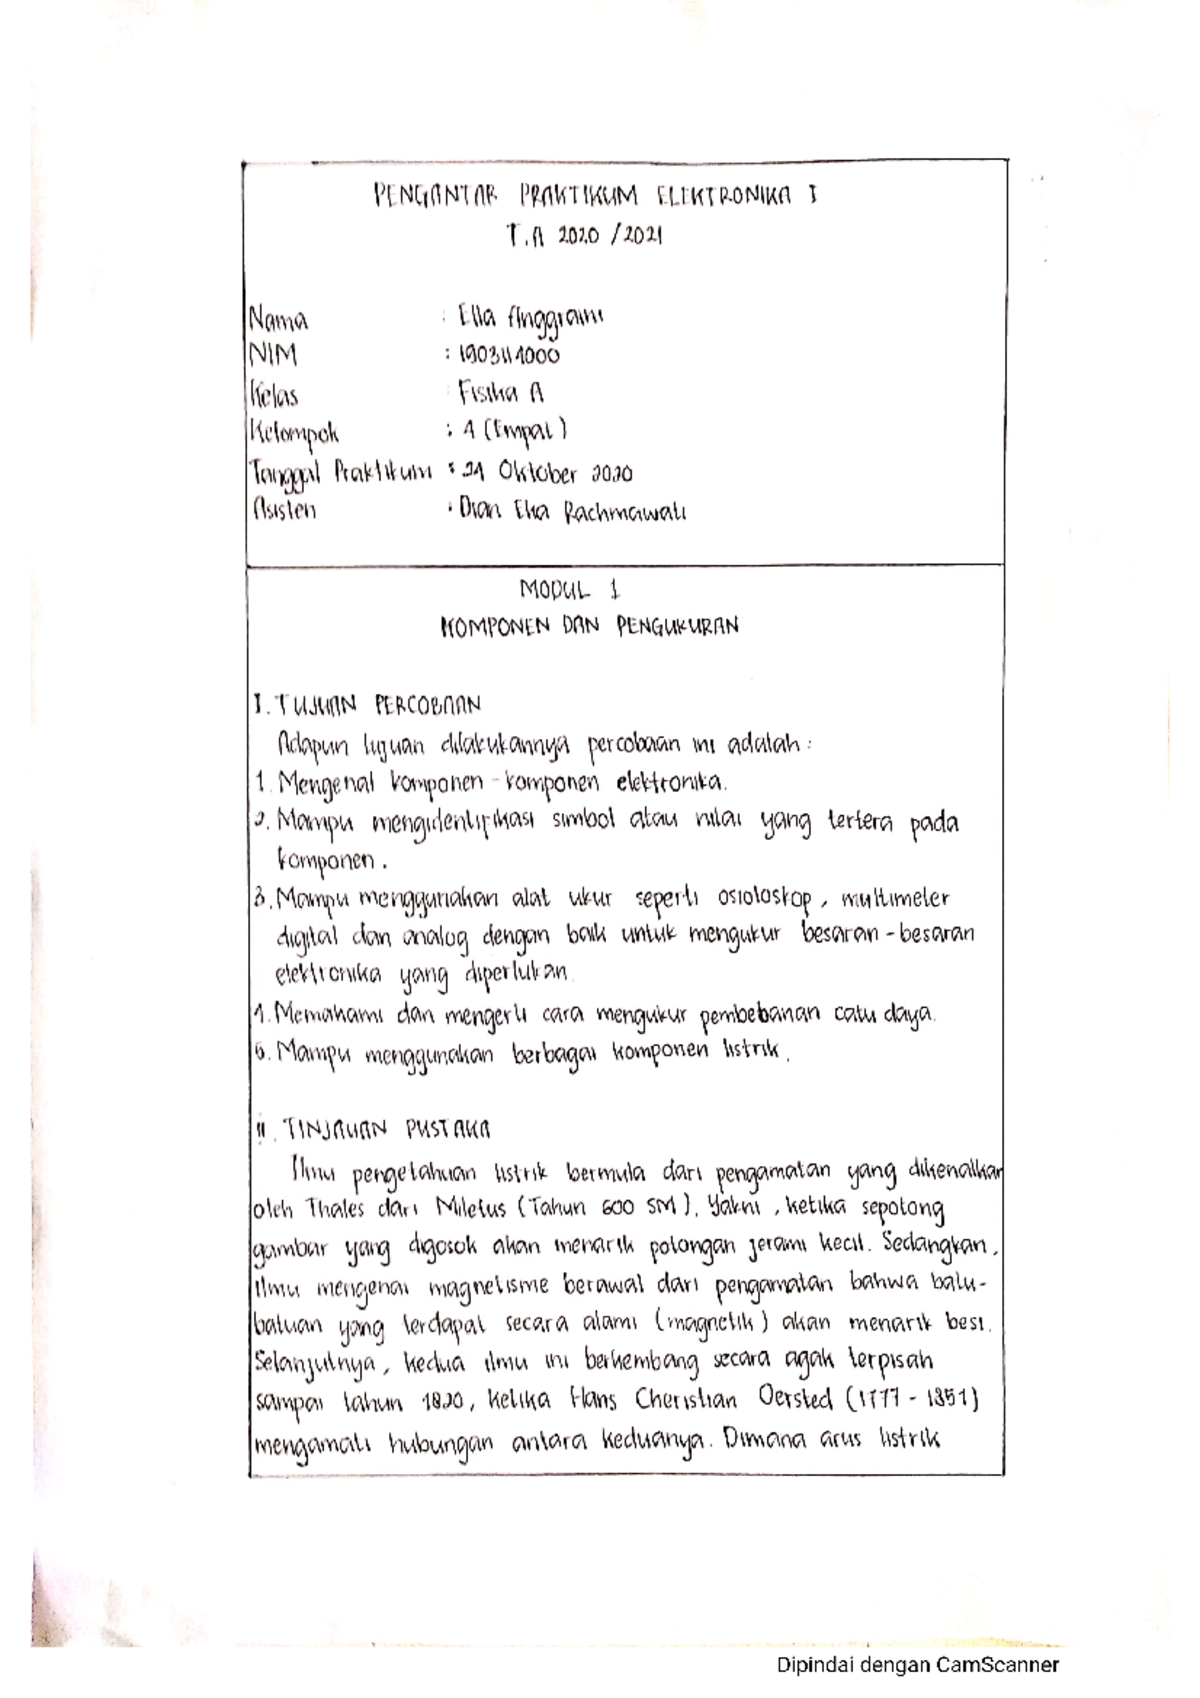 PENGANTAR PRAKTIKUM ELEKTRONIKA I
T.A 2020 / 2021
Nama : Ella Anggraini
NIM : 1903114000
Kelas : Fisika A
Kelompok : 4 (Empat)
Tanggal Praktikum : 24 Oktober 2020
Asisten : Dian Eka Rachmawati
MODUL 1
KOMPONEN DAN PENGUKURAN
I. TUJUAN PERCOBAAN
Adapun tujuan dilakukannya percobaan ini adalah :
1. Mengenal komponen - komponen elektronika.
2. Mampu mengidentifikasi simbol atau nilai yang tertera pada
komponen.
3. Mampu menggunakan alat ukur seperti osioloskop, multimeter
digital dan analog dengan baik untuk mengukur besaran - besaran
elektronika yang diperlukan.
4. Memahami dan mengerti cara mengukur pembebanan catu daya.
5. Mampu menggunakan berbagai komponen listrik.
II. TINJAUAN PUSTAKA
Ilmu pengetahuan listrik bermula dari pengamatan yang dikenalkan
oleh Thales dari Miletus (Tahun 600 SM). Yakni, ketika sepotong
gambar yang digosok akan menarik potongan jerami kecil. Sedangkan,
ilmu mengenai magnetisme berawal dari pengamatan bahwa batu-
batuan yang terdapat secara alami (magnetik) akan menarik besi.
Selanjutnya, kedua ilmu ini berkembang secara agak terpisah
sampai tahun 1820, ketika Hans Cheristian Oersted (1777 - 1851)
mengamati hubungan antara keduanya. Dimana arus listrik
Dipindai dengan CamScanner